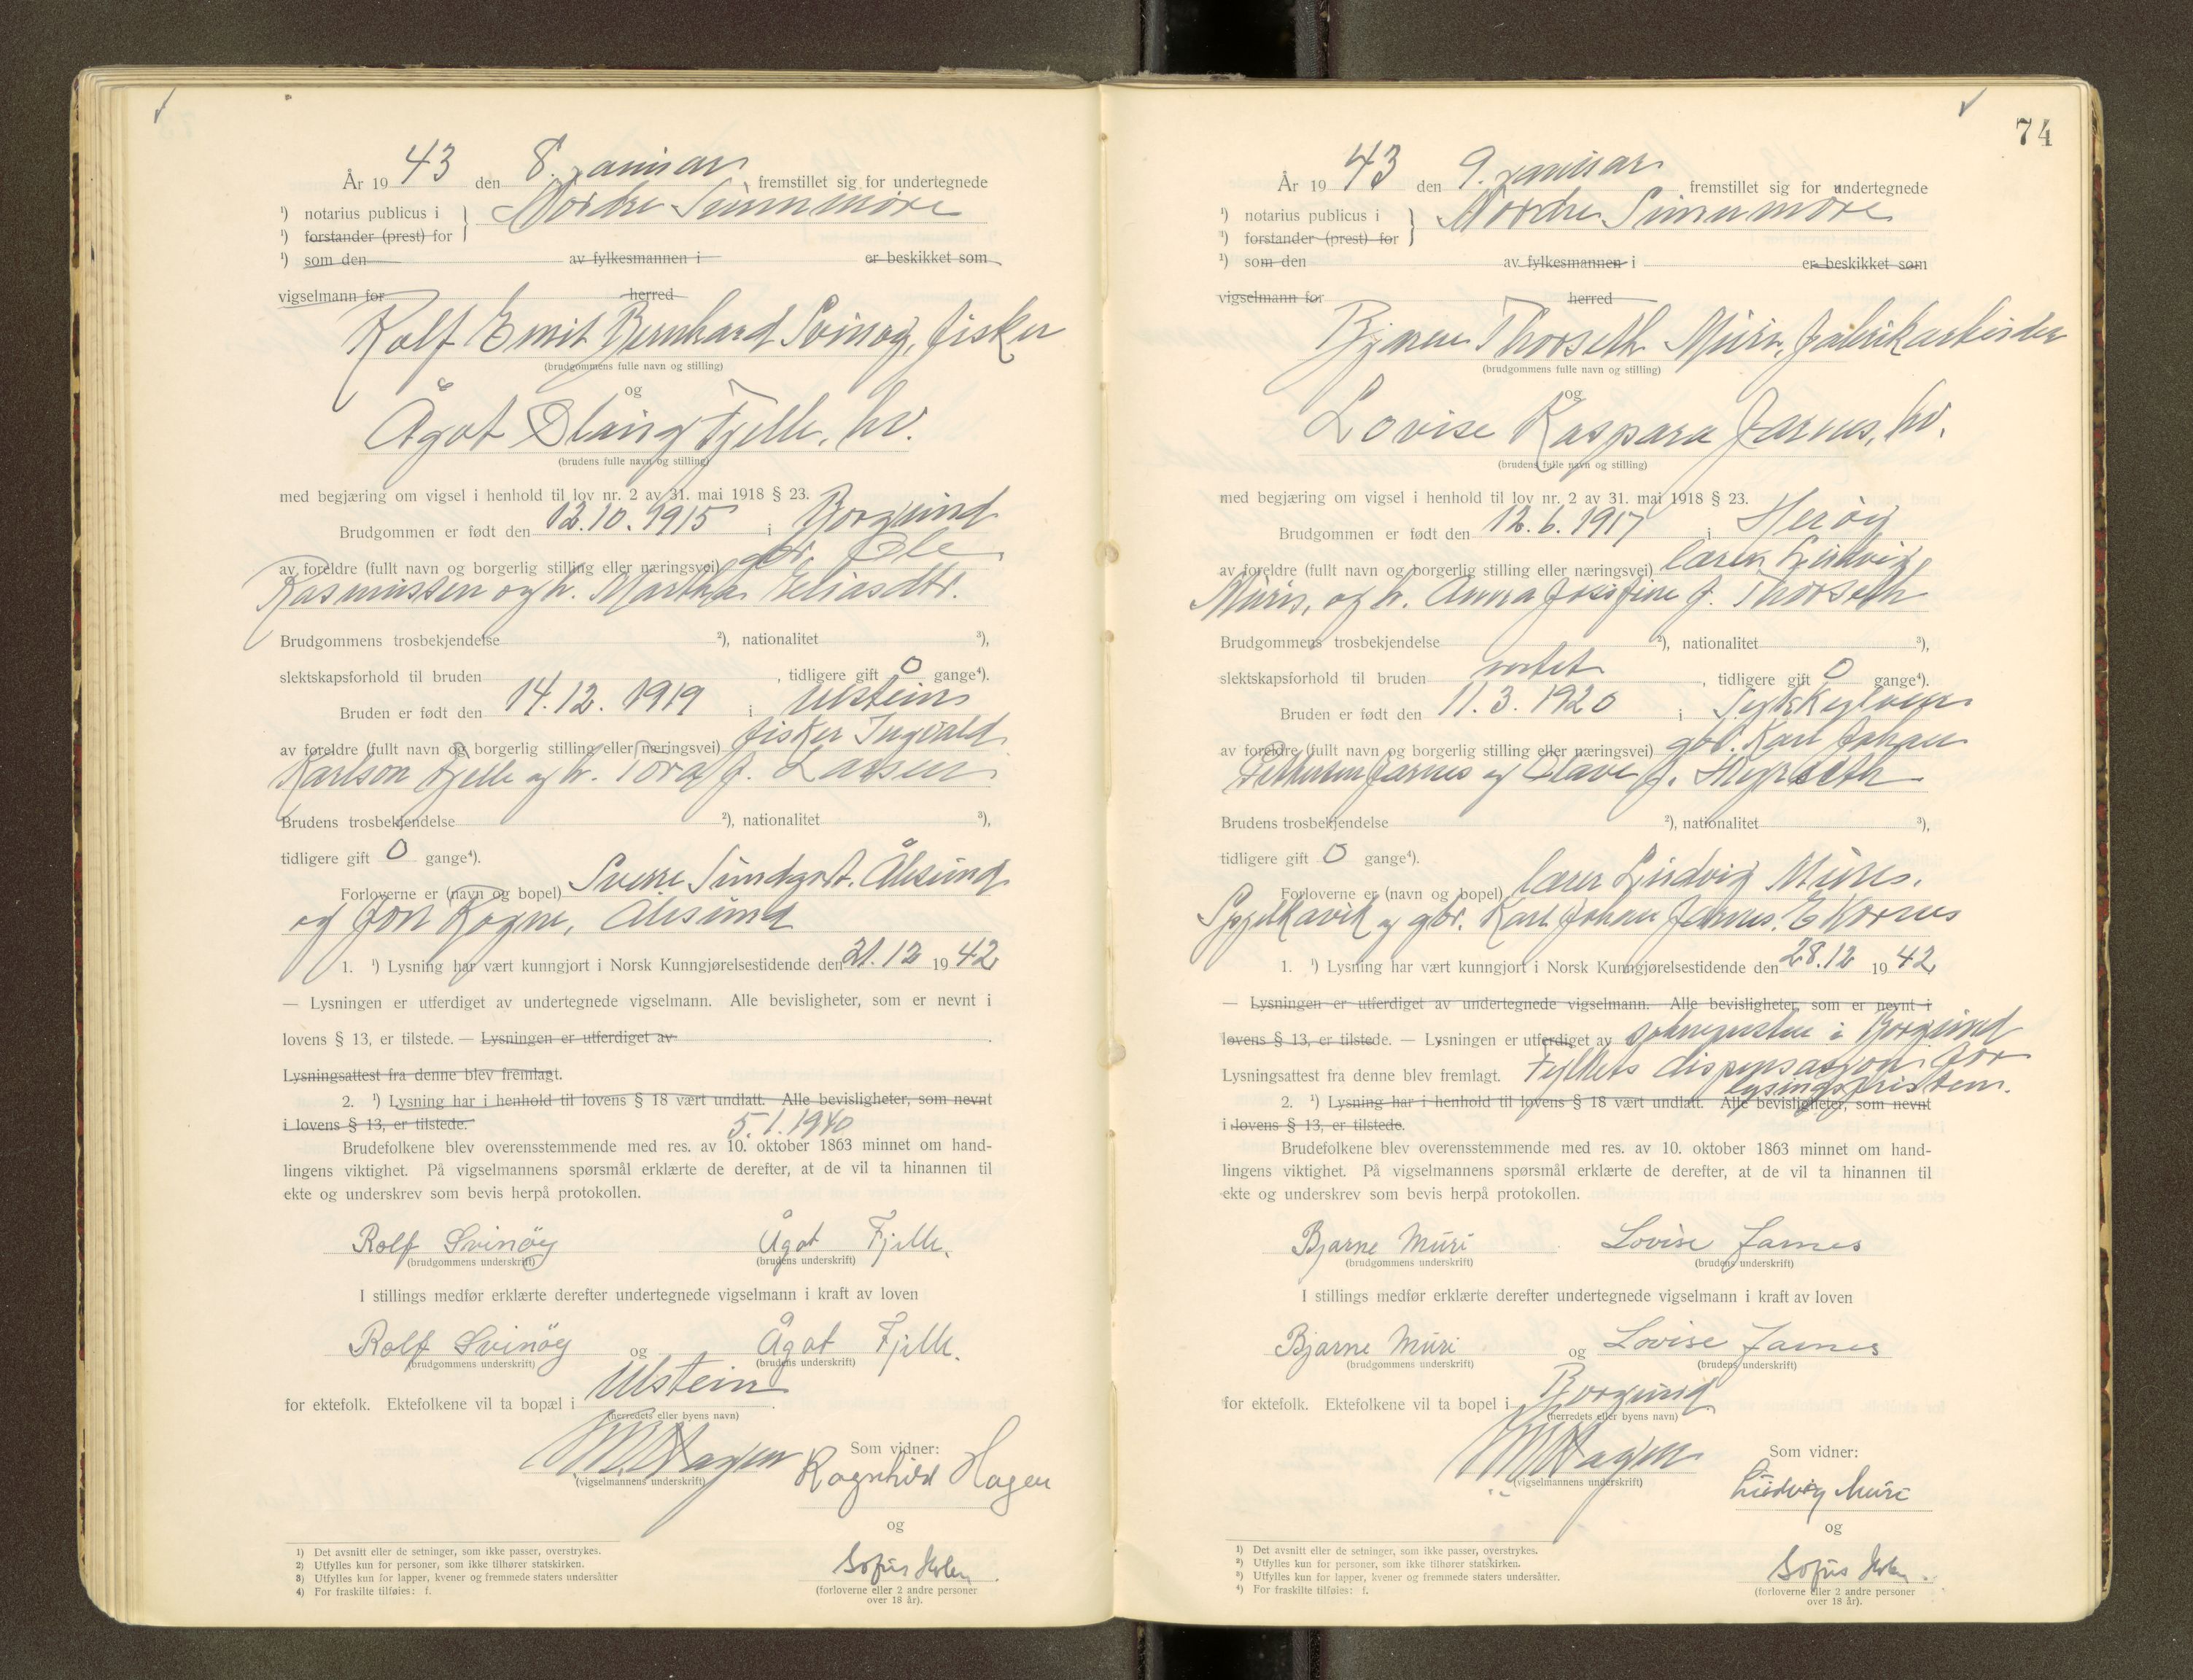 År 19 43 den 8. januar fremstillet sig for undertegnede
¹) notarius publicus i } Nordre Sunnmøre
¹) forstander (prest) for
¹) som den av fylkesmannen i er beskikket som
vigselmann for herred
Rolf Emil Bernhard Svinøy, fisker
(brudgommens fulle navn og stilling)
og
Ågot Fjelle, hv.
(brudens fulle navn og stilling)
med begjæring om vigsel i henhold til lov nr. 2 av 31. mai 1918 § 23.
Brudgommen er født den 12.10.1915 i Borgund
av foreldre (fullt navn og borgerlig stilling eller næringsvei) gbr. Ole
Rasmussen og h. Martha Eliasdtr.
Brudgommens trosbekjendelse ²), nationalitet ³),
slektskapsforhold til bruden , tidligere gift 0 gange⁴).
Bruden er født den 14.12. 1919 i Ulstein
av foreldre (fullt navn og borgerlig stilling eller næringsvei) fisker Ingvald
Karlson Fjelle og h. Tora f. Larsen
Brudens trosbekjendelse ²), nationalitet ³),
tidligere gift 0 gange⁴).
Forloverne er (navn og bopel) Sverre Sundgot, Ålesund
og Jon Rogne, Ålesund
1. ¹) Lysning har vært kunngjort i Norsk Kunngjørelsestidende den 21.12 19 42
— Lysningen er utferdiget av undertegnede vigselmann. Alle bevisligheter, som er nevnt i
lovens § 13, er tilstede. — Lysningen er utferdiget av
Lysningsattest fra denne blev fremlagt.
2. ¹) Lysning har i henhold til lovens § 18 vært undlatt. Alle bevisligheter, som nevnt
i lovens § 13, er tilstede. 5.1.1940
Brudefolkene blev overensstemmende med res. av 10. oktober 1863 minnet om hand-
lingens viktighet. På vigselmannens spørsmål erklærte de derefter, at de vil ta hinannen til
ekte og underskrev som bevis herpå protokollen.
Rolf Svinöy Ågot Fjelle.
(brudgommens underskrift) (brudens underskrift)
I stillings medfør erklærte derefter undertegnede vigselmann i kraft av loven
Rolf Svinöy og Ågot Fjelle.
(brudgommens underskrift) (brudens underskrift)
for ektefolk. Ektefolkene vil ta bopæl i Ulstein
(herredets eller byens navn)
Som vidner:
Hagen Ragnhild Hagen
(vigselmannens underskrift)
og
Sofus Holen
(forloverne eller 2 andre personer
over 18 år).
1) Det avsnitt eller de setninger, som ikke passer, overstrykes.
2) Utfylles kun for personer, som ikke tilhører statskirken.
3) Utfylles kun for lapper, kvener og fremmede staters undersåtter
4) For fraskilte tilføies: f.
74
År 19 43 den 9. januar fremstillet sig for undertegnede
¹) notarius publicus i } Nordre Sunnmøre
¹) forstander (prest) for
¹) som den av fylkesmannen i er beskikket som
vigselmann for herred
Bjarne Thorseth Muri, fabrikarbeider
(brudgommens fulle navn og stilling)
og
Lovise Kaspara Jarnes, hv.
(brudens fulle navn og stilling)
med begjæring om vigsel i henhold til lov nr. 2 av 31. mai 1918 § 23.
Brudgommen er født den 12.6.1917 i Herøy
av foreldre (fullt navn og borgerlig stilling eller næringsvei) lærer Ludvig
Muri, og h. Anna Josefine f. Thorseth
Brudgommens trosbekjendelse ²), nationalitet ³),
slektskapsforhold til bruden intet , tidligere gift 0 gange⁴).
Bruden er født den 11.3.1920 i Sykkylven
av foreldre (fullt navn og borgerlig stilling eller næringsvei) gbr. Karl Johan
Jarnes og Olave f.
Brudens trosbekjendelse ²), nationalitet ³),
tidligere gift 0 gange⁴).
Forloverne er (navn og bopel) lærer Ludvig Muri,
Spjelkavik og gbr. Karl Johan Jarnes, Ekornes
1. ¹) Lysning har vært kunngjort i Norsk Kunngjørelsestidende den 28.12 19 42
— Lysningen er utferdiget av undertegnede vigselmann. Alle bevisligheter, som er nevnt i
lovens § 13, er tilstede. — Lysningen er utferdiget av soknepresten i Borgund
Lysningsattest fra denne blev fremlagt. Fylkets dispensasjon for
lysingsfristen.
2. ¹) Lysning har i henhold til lovens § 18 vært undlatt. Alle bevisligheter, som nevnt
i lovens § 13, er tilstede.
Brudefolkene blev overensstemmende med res. av 10. oktober 1863 minnet om hand-
lingens viktighet. På vigselmannens spørsmål erklærte de derefter, at de vil ta hinannen til
ekte og underskrev som bevis herpå protokollen.
Bjarne Muri Lovise Jarnes
(brudgommens underskrift) (brudens underskrift)
I stillings medfør erklærte derefter undertegnede vigselmann i kraft av loven
Bjarne Muri og Lovise Jarnes
(brudgommens underskrift) (brudens underskrift)
for ektefolk. Ektefolkene vil ta bopel i Borgund
(herredets eller byens navn)
Som vidner:
Hagen Ludvig Muri
(vigselmannens underskrift)
og
Sofus Holen
(forloverne eller 2 andre personer
over 18 år).
1) Det avsnitt eller de setninger, som ikke passer, overstrykes.
2) Utfylles kun for personer, som ikke tilhører statskirken.
3) Utfylles kun for lapper, kvener og fremmede staters undersåtter.
4) For fraskilte tilføies: f.